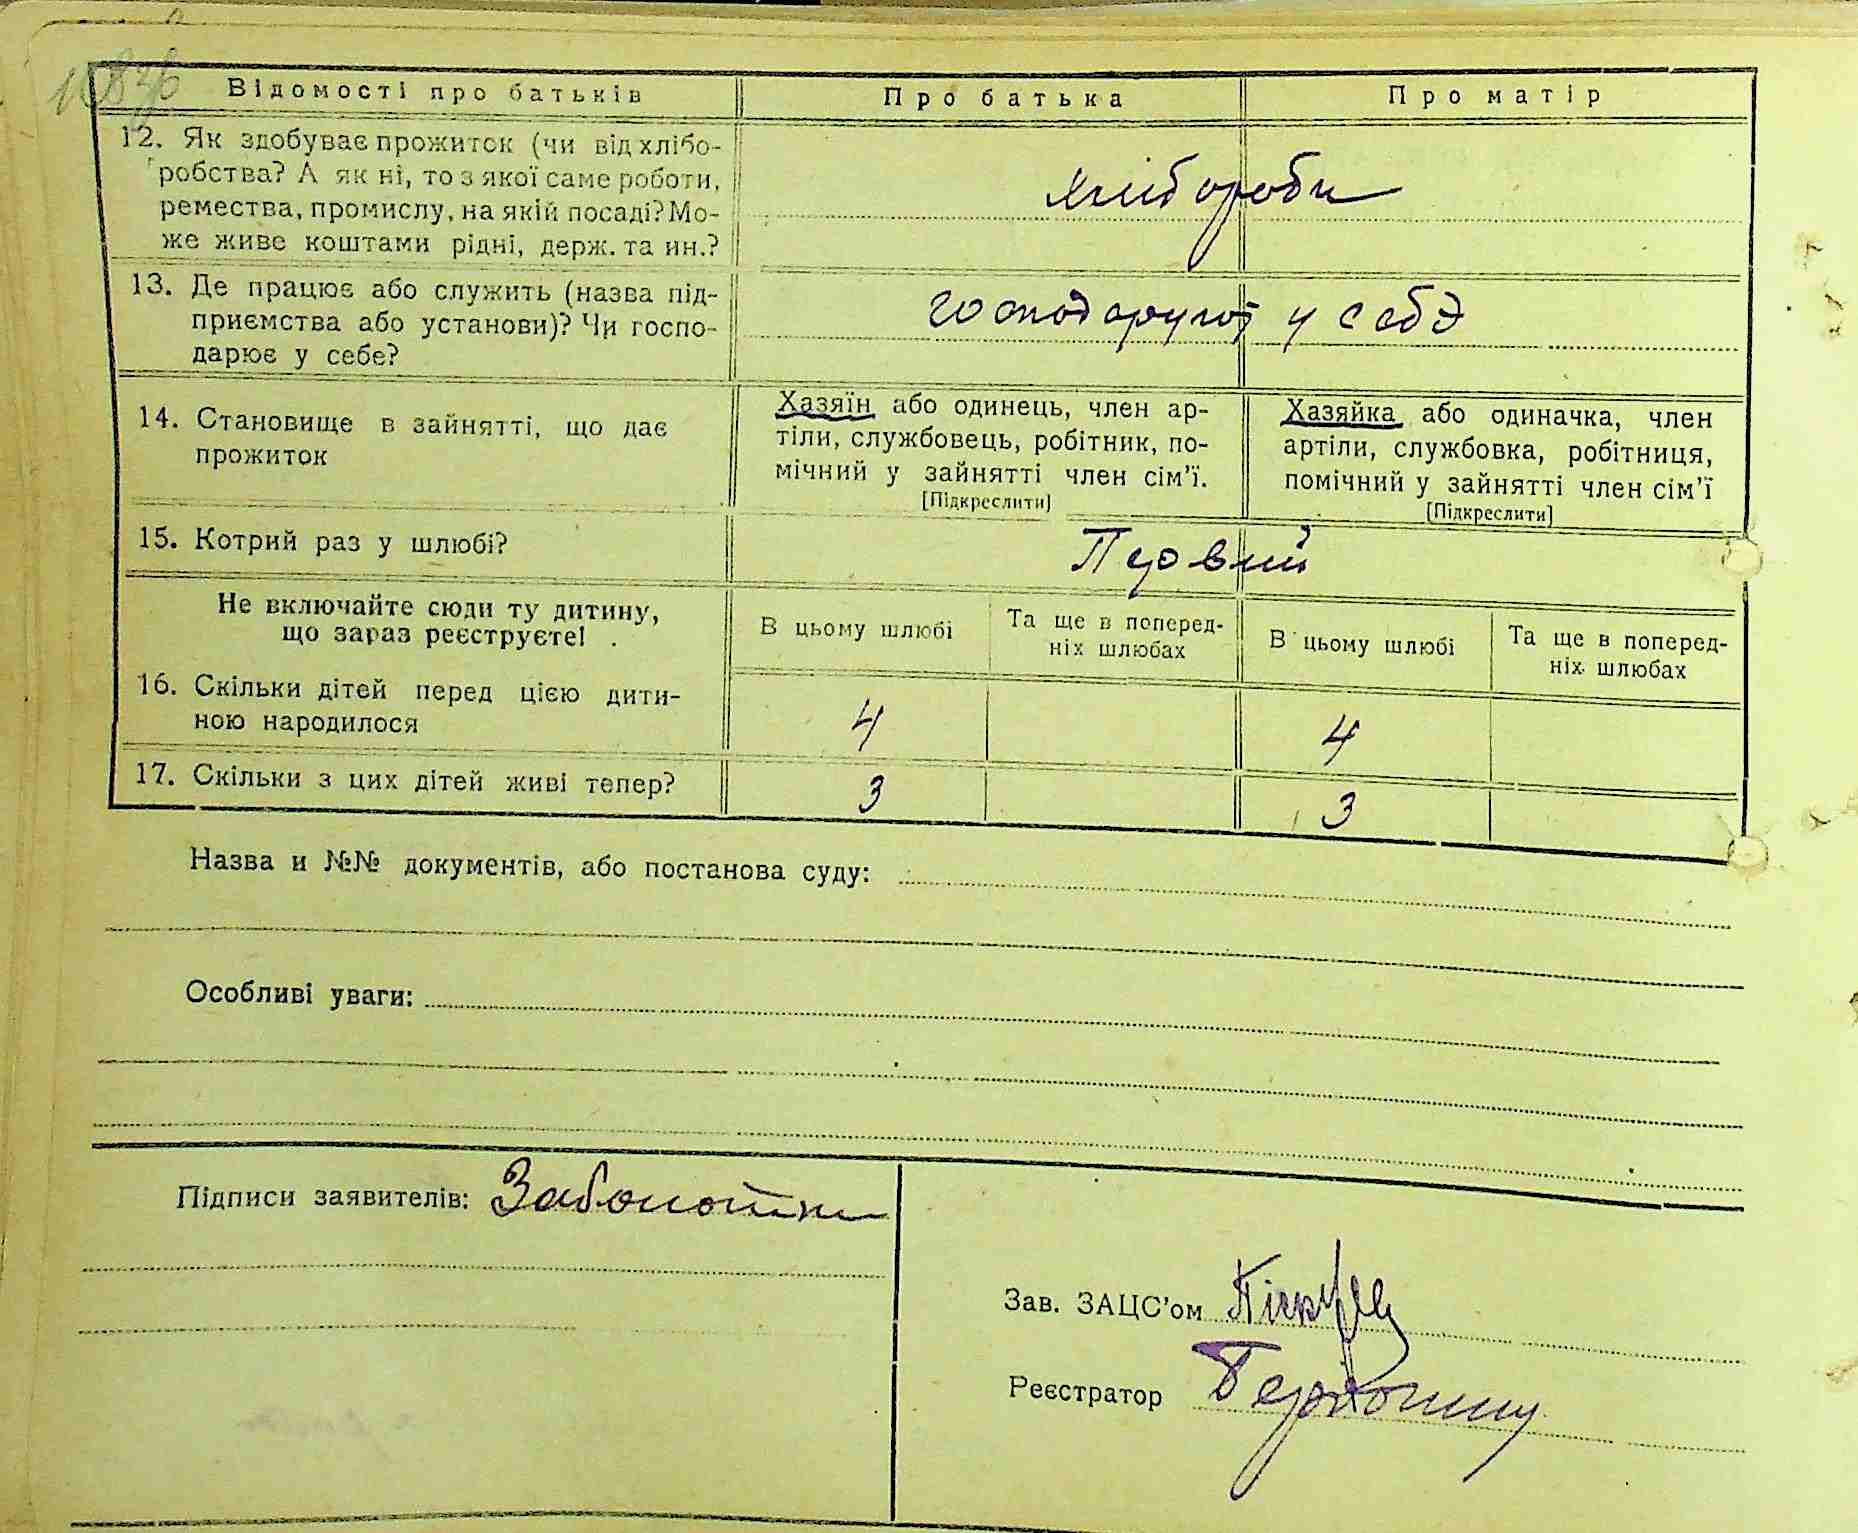 Відомості про батьків
Про батька
Про матір
12. Як здобуває прожиток (чи від хлібо-
робства? А як ні, то з якої саме роботи,
ремества, промислу, на якій посаді? Мо-
же живе коштами рідні, держ. та ин.?
хлібороби
13. Де працює або служить (назва під-
приємства або установи)? Чи госпо-
дарює у себе?
господарують у себе
14. Становище в зайнятті, що дає
прожиток
Хазяїн або одинець, член ар-
тіли, службовець, робітник, по-
мічний у зайнятті член сім'ї.
[Підкреслити]
Хазяйка або одиначка, член
артіли, службовка, робітниця,
помічний у зайнятті член сім'ї
[Підкреслити]
15. Котрий раз у шлюбі?
Первий
Не включайте сюди ту дитину,
що зараз реєструєте!
В цьому шлюбі
Та ще в поперед-
ніх шлюбах
В цьому шлюбі
Та ще в поперед-
ніх шлюбах
16. Скільки дітей перед цією дити-
ною народилося
4
4
17. Скільки з цих дітей живі тепер?
3
3
Назва и №№ документів, або постанова суду:
Особливі уваги:
Підписи заявителів: Заболотни
Зав. ЗАЦС'ом
Реєстратор